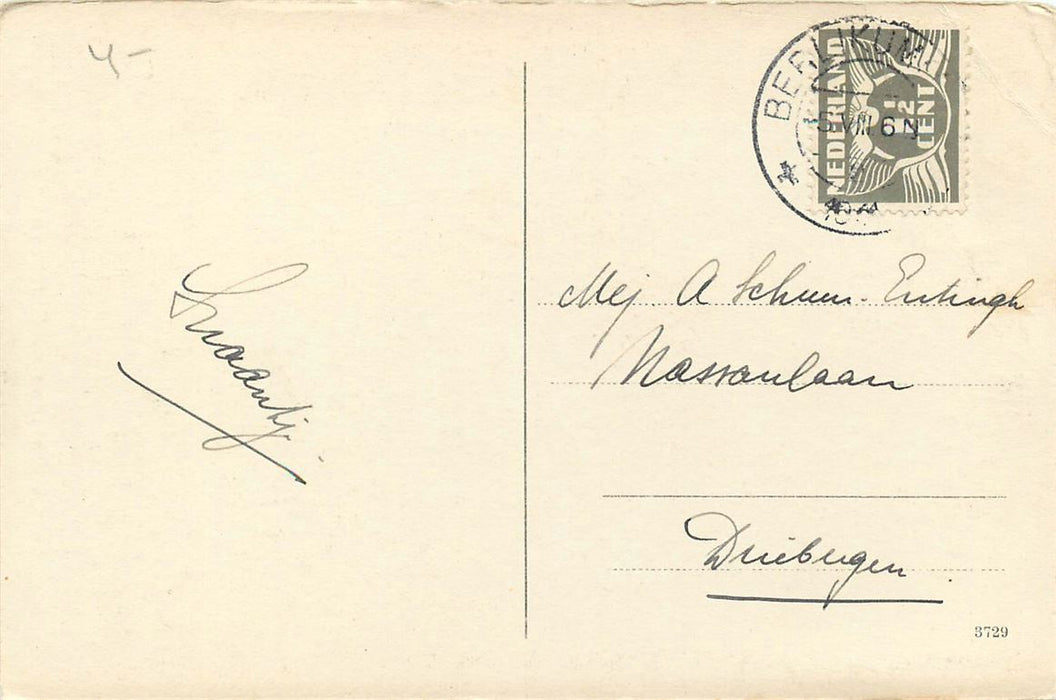 4-
BERLIKUM
NEDERLAND
1½ CENT
5.VIII.6 N
Mej. A Schuur-Entingh
Nassaulaan
Driebergen
3729